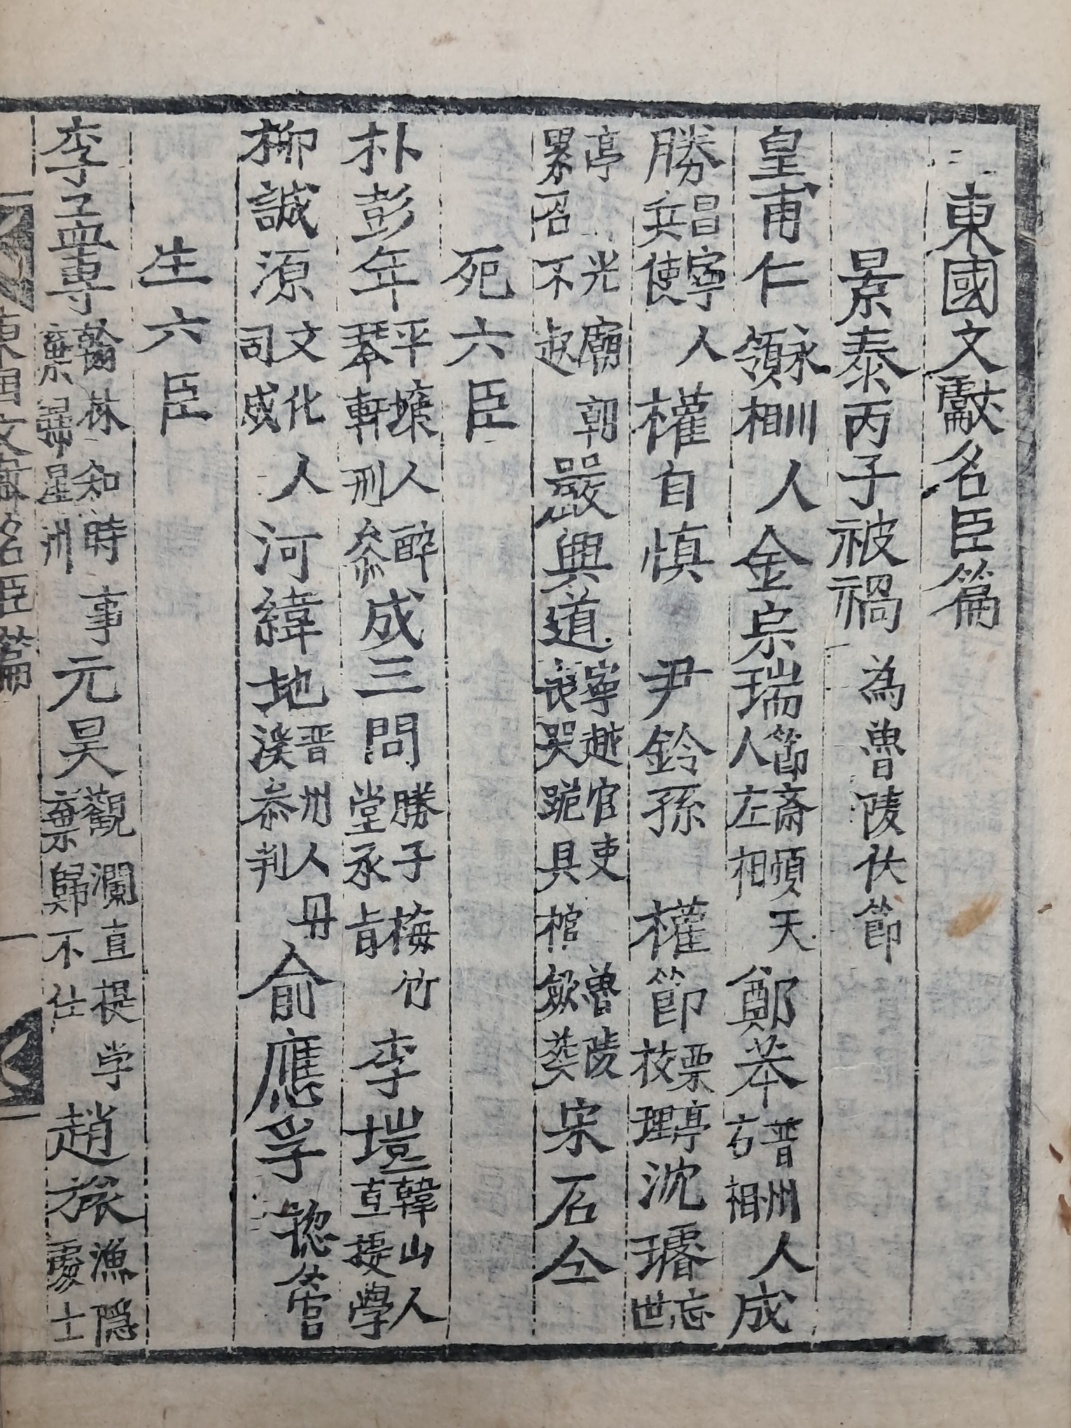 東國文獻名臣篇
景泰丙子被禍 為魯陵伏節
皇甫仁 永川人 領相 金宗瑞 節齋順天人左相 鄭苯 晋州人 右相 成
勝 昌寧人 兵使 權自慎 尹鈴孫 權節 栗亭 校理 沈璿 忘世
亭光廟朝累召不起 嚴興道 寧越官吏 魯陵喪哭跪具棺斂葬 宋石仝
死六臣
朴彭年 平壤人醉琴軒刑參 成三問 勝子梅竹堂承旨 李塏 韓山人直提學
柳誠源 文化人 司成 河緯地 晋州人丹溪叅判 俞應孚 摠管
生六臣
李孟專 翰林知時事棄歸星州 元昊 觀瀾直提学棄歸不仕 趙旅 漁隠處士
東國文獻名臣篇 一